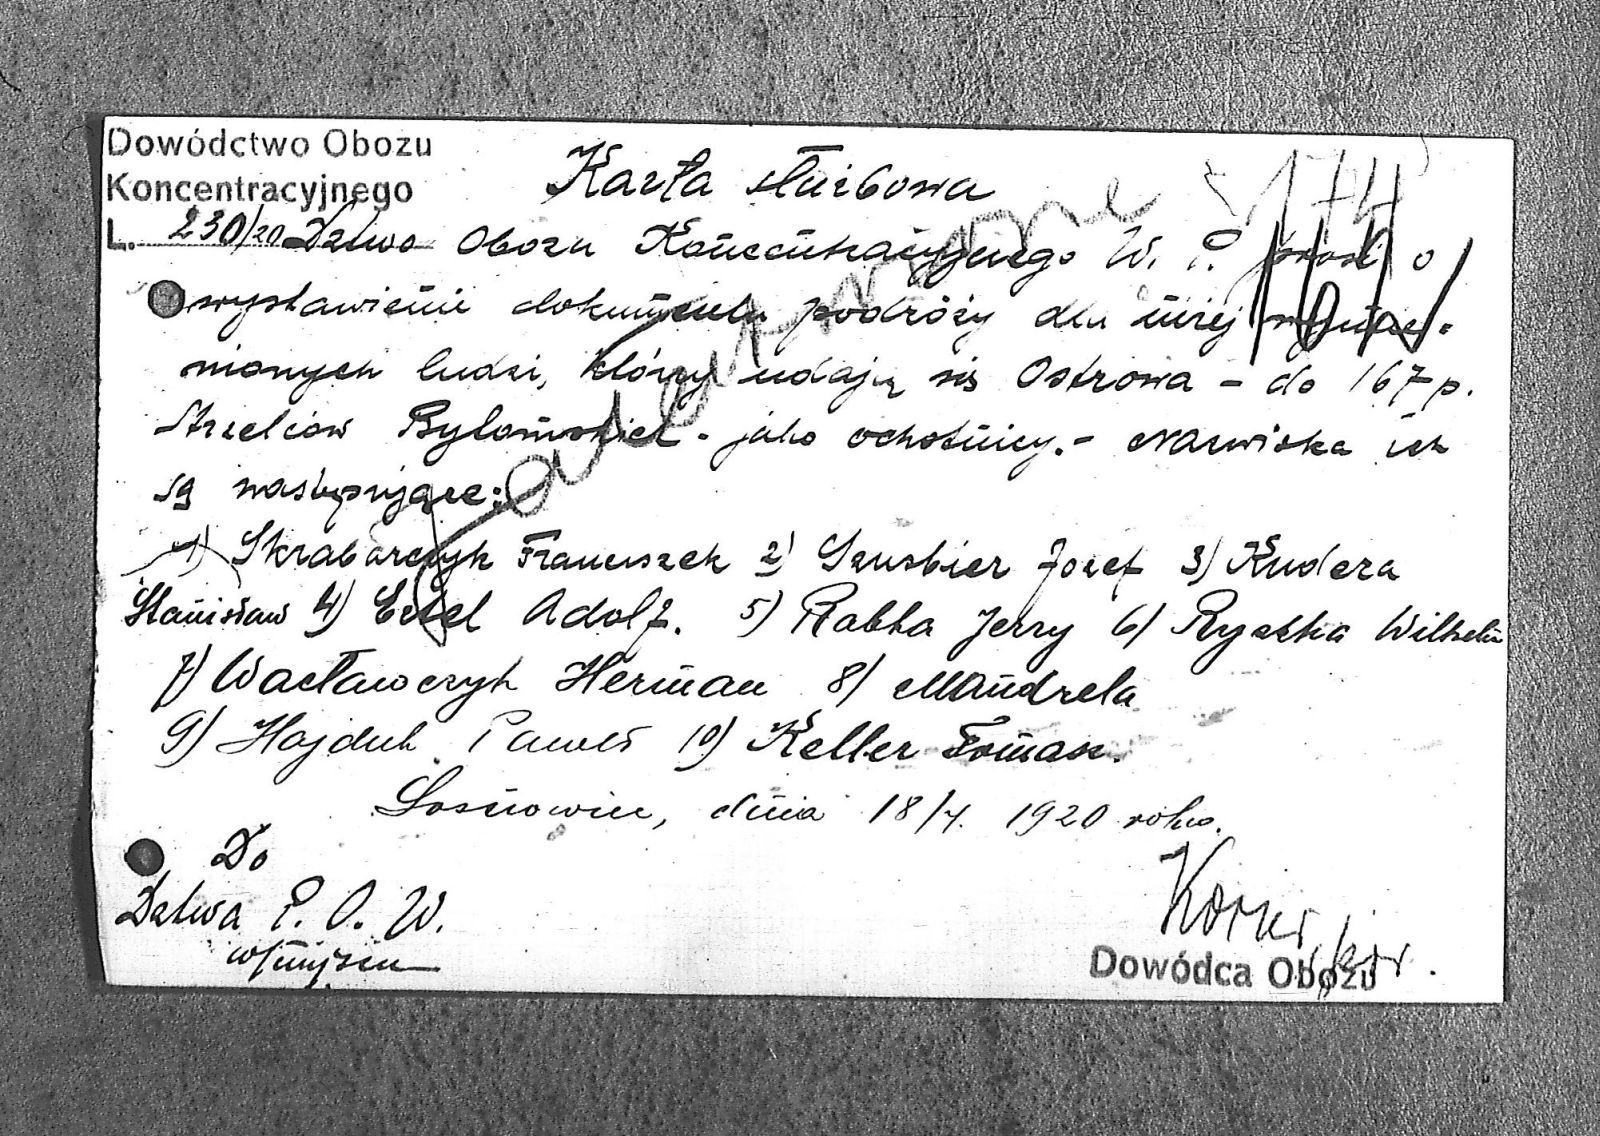 Dowództwo Obozu
Koncentracyjnego
Karta służbowa
174
L. 230/20 Dztwo Obozu Koncentracyjnego W. P. prosi o
wystawienie dokumentu podróży dla niżej wymie-
nionych ludzi, którzy udają się Ostrowa - do 167 p.
Strzelców Bytomskich - jako ochotnicy. - Nazwiska ich
są następujące:
1) Skrabarczyk Franciszek 2) Szusbier Jozef 3) Kudera
Stanisław 4) Ertel Adolf. 5) Rabka Jerzy 6) Ryszka Wilhelm
7) Wacławczyk Herman 8) Mandrela
9) Hajduk Paweł 10) Keller Tomasz.
Sosnowiec, dnia 18/4. 1920 roku.
Do
Dztwa P. O. W.
w/miejscu
Dowódca Obozu